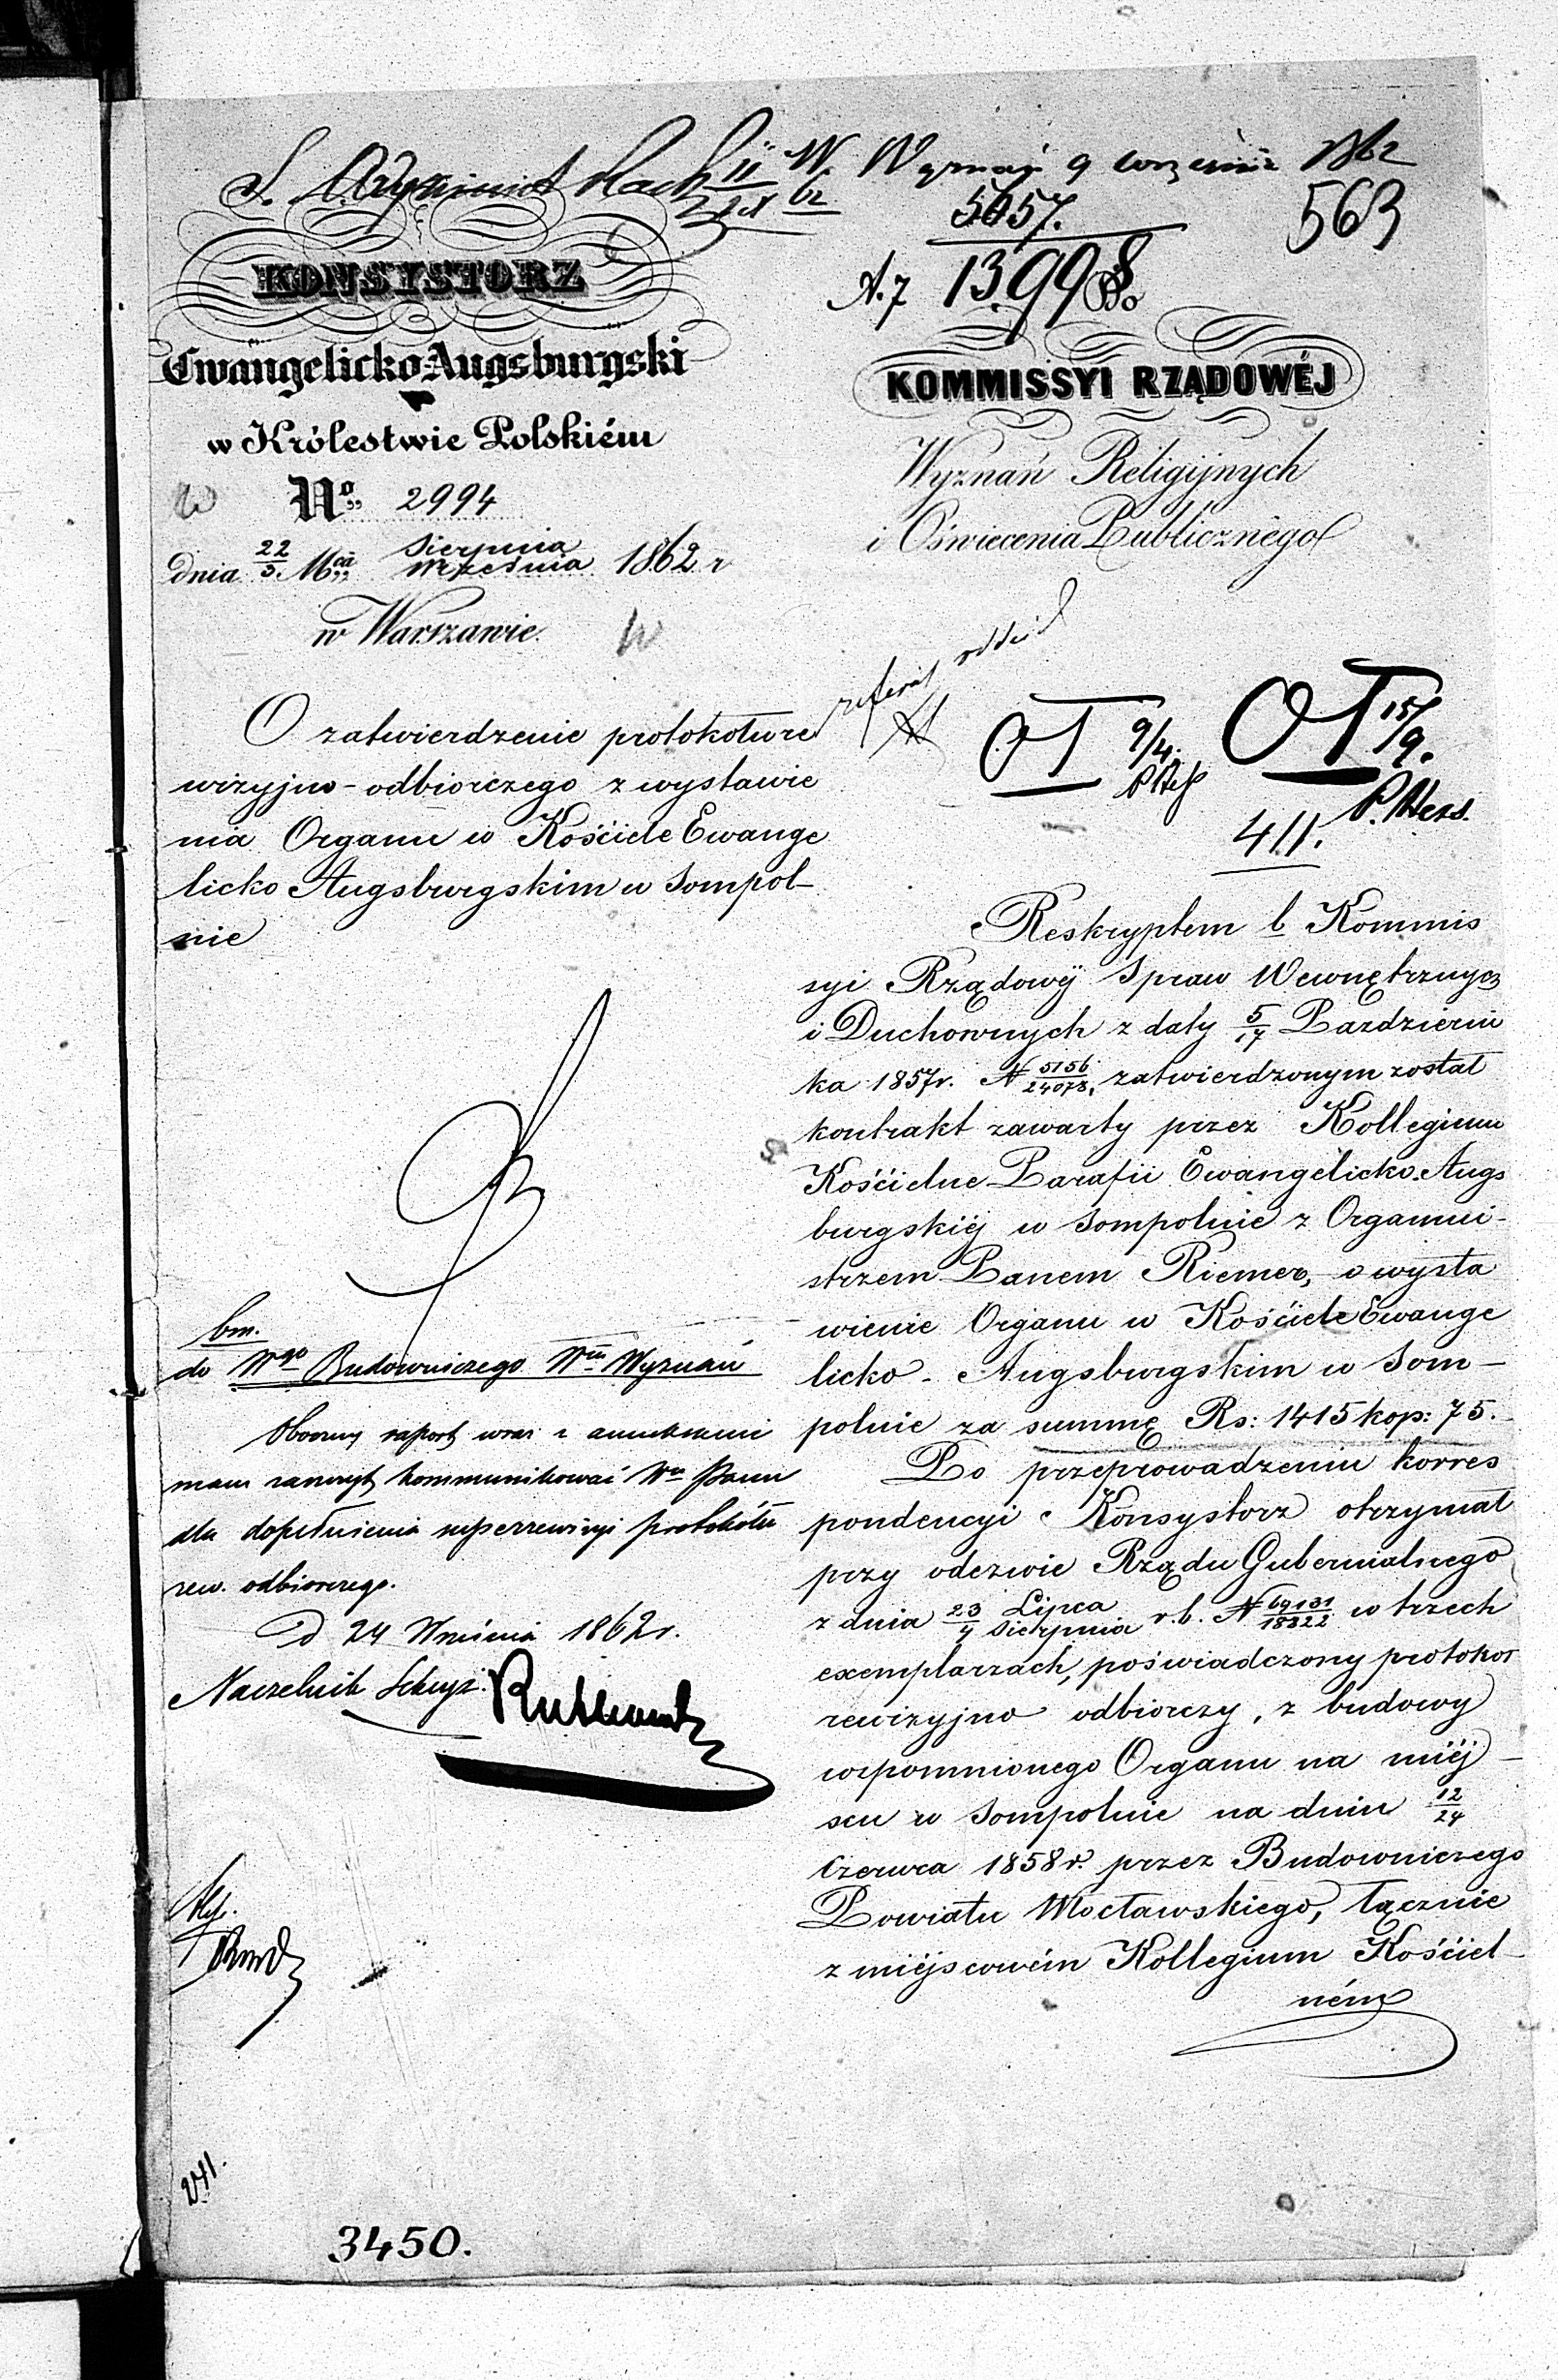 W. Wyznań 9 września 1862
5057.
563
A. 7 13998
KONSYSTORZ
Ewangelicko-Augsburgski
w Królestwie Polskiém
No 2994
dnia 22/3 Mca Sierpnia/Września 1862 r
w Warszawie.
O zatwierdzenie protokołu re
wizyjno-odbiorczego z wystawie
nia Organu w Kościele Ewange
licko Augsburgskim w Sompol-
nie
bm.
do Wgo Budowniczego Wu Wyznań
Obecny raport wraz z annexami
mam zaszczyt kommunikować Wu Panu
dla dopełnienia superrewizyi protokółu
rew. odbiorczego.
D 24 Września 1862 r.
Naczelnik
KOMMISSYI RZĄDOWÉJ
Wyznań Religijnych
i Oświecenia Publicznego
referat oddział
OT 9/4.
OT 15/9.
411.
Reskryptem b. Kommis
syi Rządowéj Spraw Wewnętrznych
i Duchownych z daty 5/17 Pazdzierni
ka 1857 r. N 5156/24078, zatwierdzonym został
kontrakt zawarty przez Kollegium
Kościelne Parafii Ewangelicko-Augs
burgskiéj w Sompolnie z Organmi-
strzem Panem Riemer, o wysta
wienie Organu w Kościele Ewange
licko-Augsburgskim w Som-
polnie za summę Rs: 1415 kop: 75.
Po przeprowadzeniu korres
pondencyi Konsystorz otrzymał
przy odezwie Rządu Gubernialnego
z dnia 23/4 Lipca/Sierpnia r. b. N 69131/18322 w trzech
exemplarzach, poświadczony protokół
rewizyjno odbiorczy, z budowy
wspomnionego Organu na miéj-
scu w Sompolnie na dniu 12/24
Czerwca 1858 r. przez Budowniczego
Powiatu Włocławskiego, łącznie
z miéjscowém Kollegium Kościel-
ném
3450.